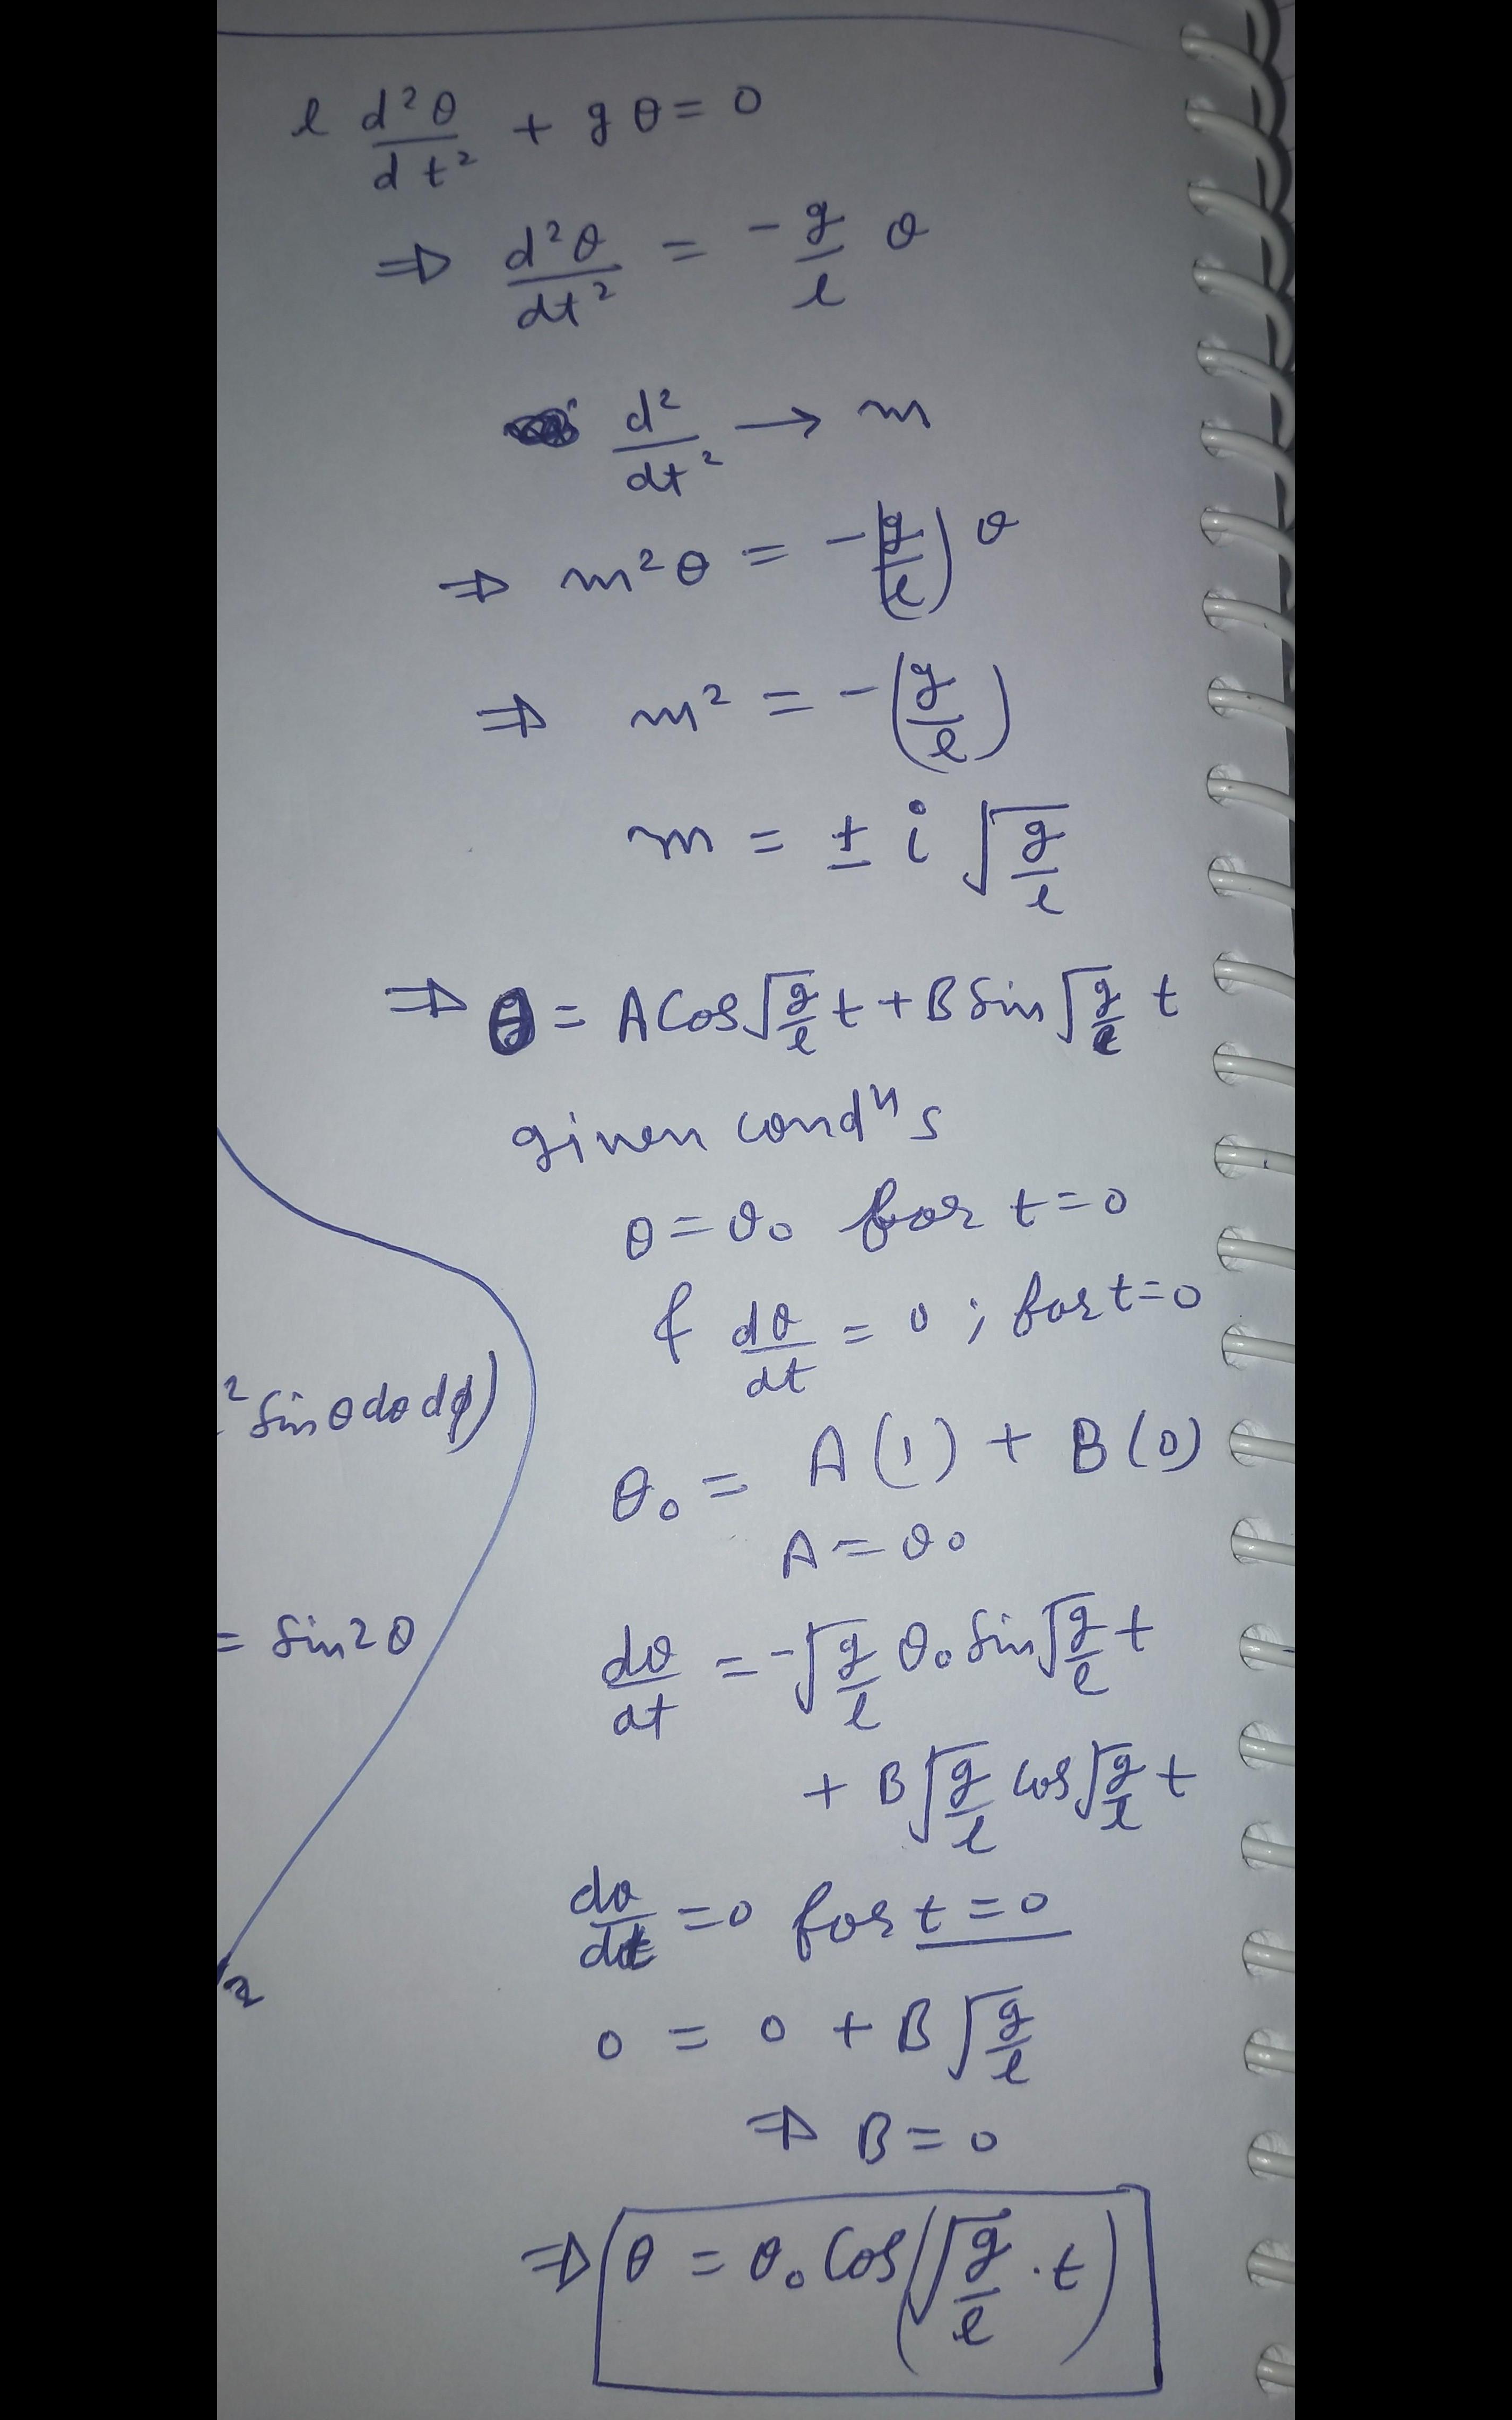 l d²θ/dt² + gθ = 0
⇒ d²θ/dt² = -g/l θ
d²/dt² → m
⇒ m²θ = -(g/l)θ
⇒ m² = -(g/l)
m = ± i √(g/l)
⇒ θ = A Cos√(g/l) t + B Sin√(g/l) t
given condⁿs
θ = θ₀ for t=0
& dθ/dt = 0 ; for t=0
² Sinθ dθ dϕ)
θ₀ = A(1) + B(0)
A = θ₀
= Sin2θ
dθ/dt = -√(g/l) θ₀ Sin√(g/l) t
+ B√(g/l) cos√(g/l) t
dθ/dt = 0 for t = 0
2
0 = 0 + B√(g/l)
⇒ B = 0
⇒ θ = θ₀ Cos(√(g/l) · t)